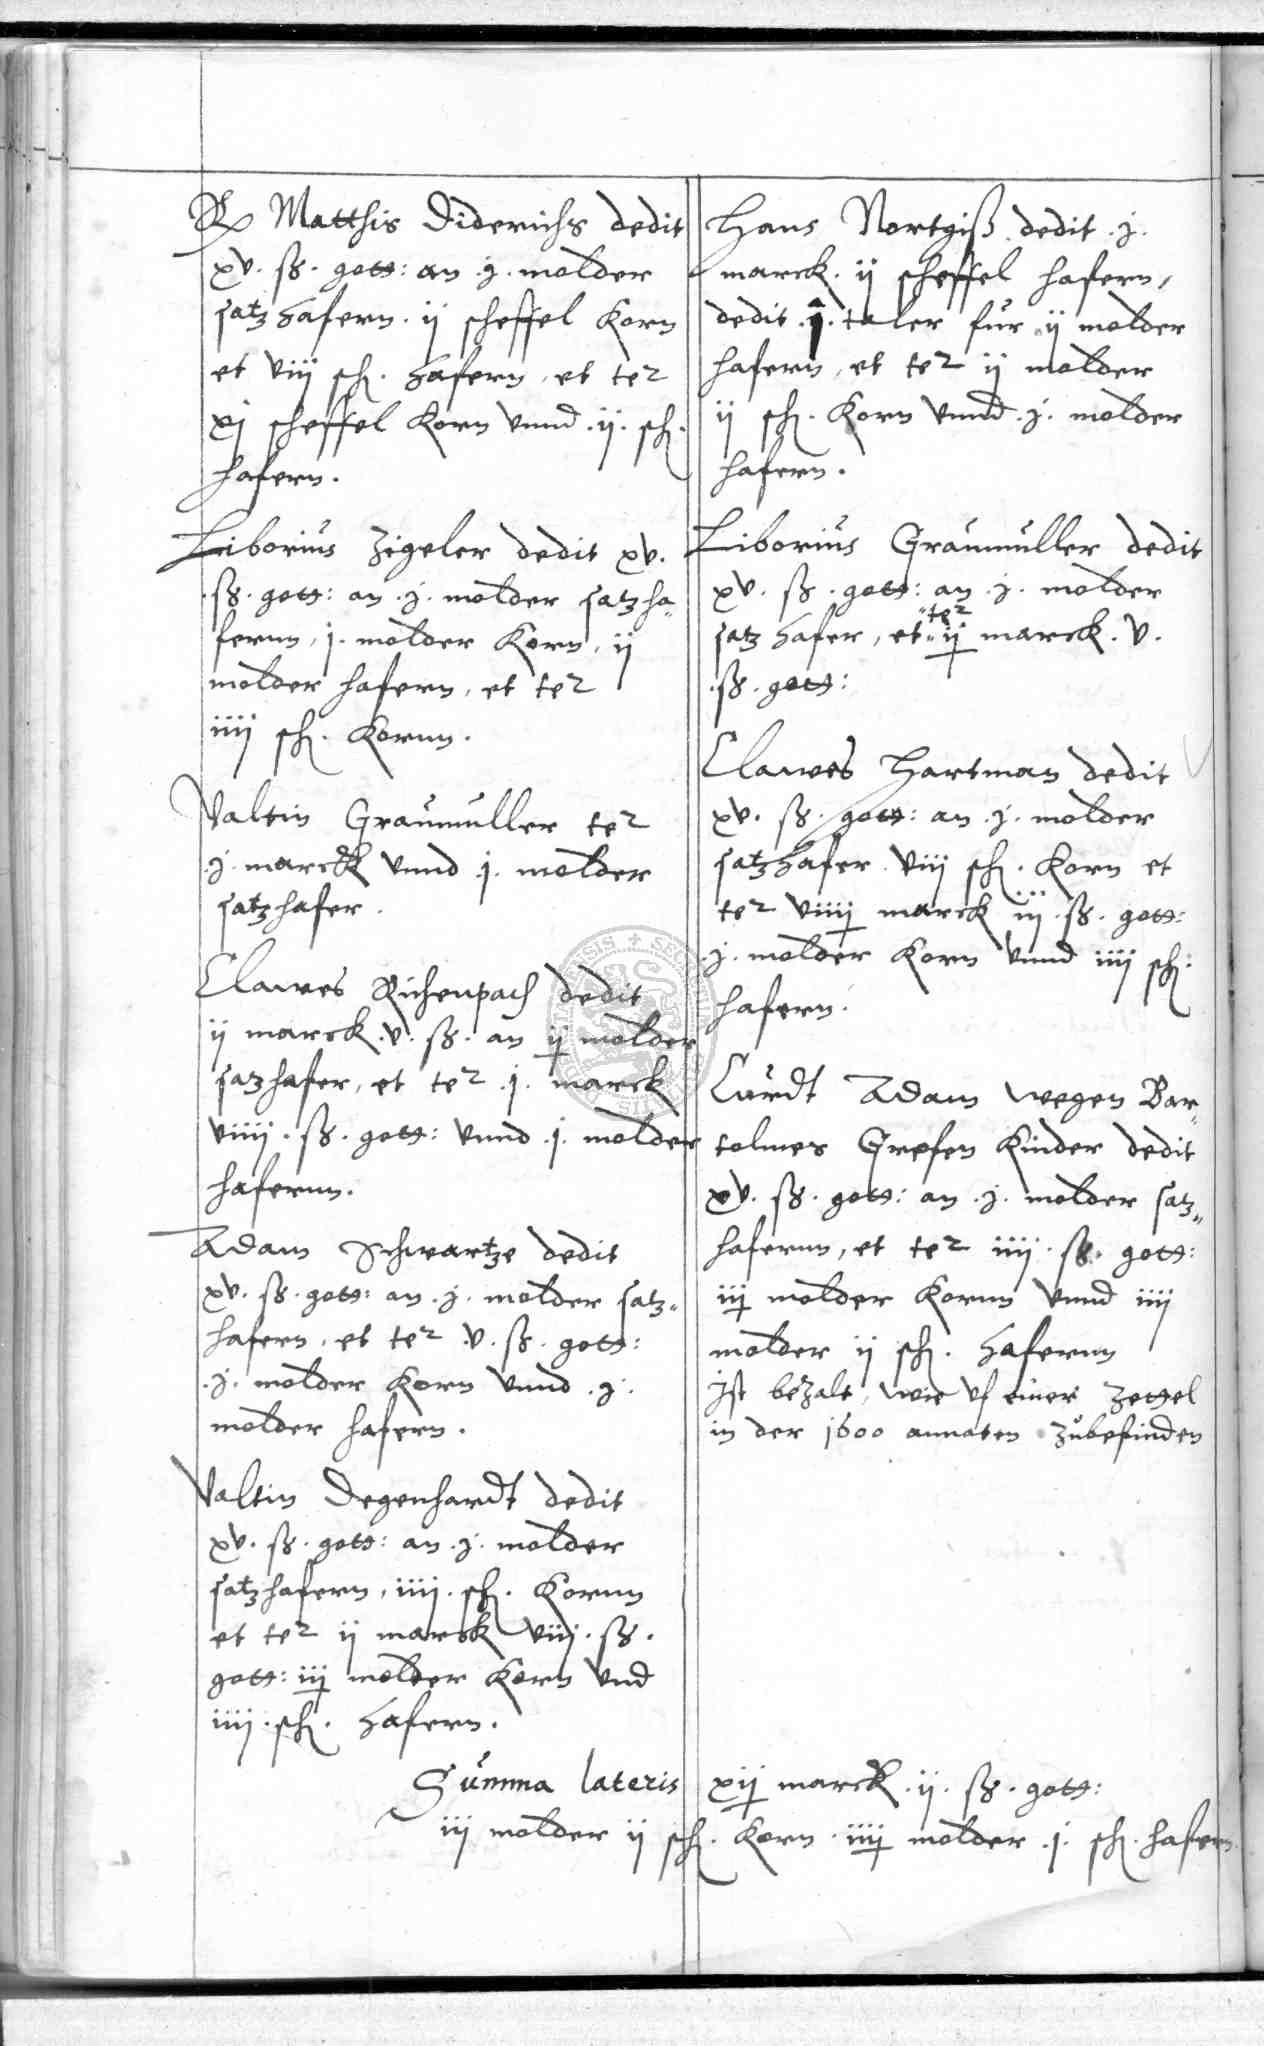 Matthis Diderichs dedit
xv. ß. gott: an .j. molder
satzhafern. ij scheffel Korn
et viij sch. hafern, et ter
xj scheffel Korn vnnd .ij. sch.
hafern.
Liborius Zigeler dedit xv.
ß. gott: an .j. molder satzha„
fernn, j. molder Korn, ij
molder hafern, et ter
iiij sch. Kornn.
Valtin Graumuller ter
.j. marck vnnd .j. molder
satzhafer.
Clawes Richenpach dedit
ij marck .v. ß. an ij molder
satzhafer, et ter .j. marck
viiij. ß. gott: vnnd .j. molder
hafernn.
Adam Schwartze dedit
xv. ß. gott: an .j. molder satz„
hafern, et ter .v. ß. gott:
.j. molder Korn vnnd .j.
molder hafern.
Valtin Degenhardt dedit
xv. ß. gott: an .j. molder
satzhafern, iiij. sch. Kornn
et ter ij marck viij. ß.
gott: iij molder Korn vnd
iiij. sch. hafern.
Hans Nortgiß dedit .j.
marck. ij scheffel hafern,
dedit .j. taler fur .ij molder
hafern, et ter ij molder
ij sch. Korn vnnd .j. molder
hafern.
Liborius Graumuller dedit
xv. ß. gott: an .j. molder
satzhafer, et ter ij marck. v.
.ß. gott:
Clawes Hartman dedit
xv. ß. gott: an .j. molder
satzhafer. viij sch. Korn et
ter viiij marck iij. ß. gott:
.j. molder Korn vnnd iiij sch.
hafern.
Curdt Adam wegen Bar„
tolmes Grefen Kinder dedit
xv. ß. gott: an .j. molder satz„
hafernn, et ter iiij. ß. gott:
iij molder Kornn vnnd iiij
molder ij sch. hafernn
Jst bezalt, wie vf einer zettel
in der 1600 annaten zubefinden
Summa lateris xij marck .ij. ß. gott:
iij molder ij sch. Korn. iiij molder .j. sch. hafern.